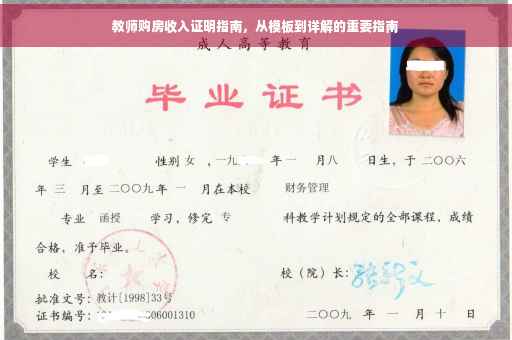 教师购房收入证明指南，从模板到详解的重要指南
成人高等教育
毕业证书
学生 性别 女 ，一九 年 一 月八 日生，于 二〇〇六
年 三 月至 二〇〇九 年 一 月在本校 财务管理
专业 函授 学习，修完 专 科教学计划规定的全部课程，成绩
合格，准予毕业。
校 名： 校（院）长：
批准文号：教计[1998]33号
证书编号： 06001310 二〇〇九 年 一 月 十 日